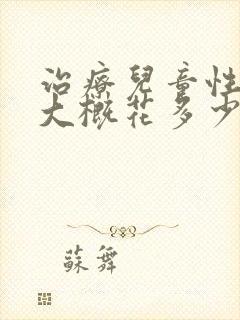 治療兒童性
大概花多少
蘇舞